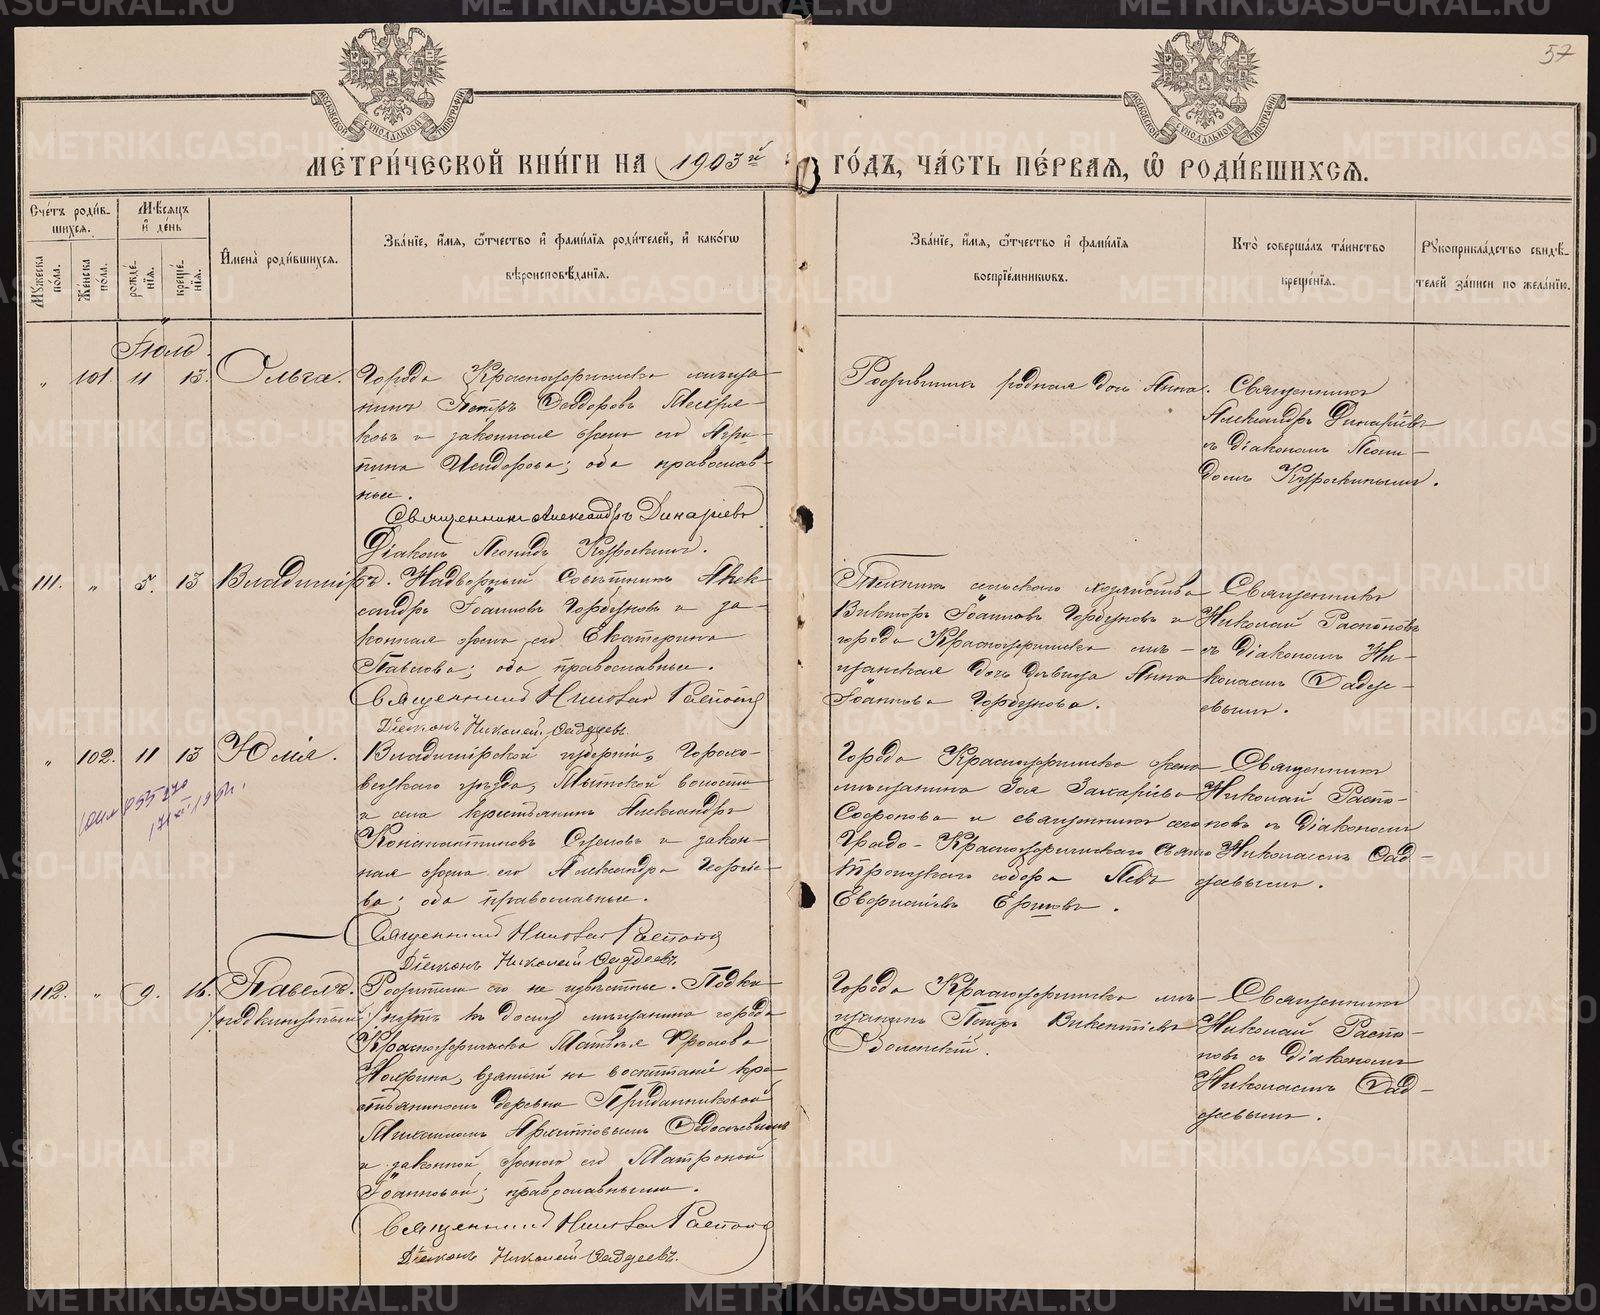 57
МОСКОВСКОЙ СѴНОДАЛЬНОЙ ТИПОГРАФІИ
МОСКОВСКОЙ СѴНОДАЛЬНОЙ ТИПОГРАФІИ
МЕТРИ́ЧЕСКОЙ КНИ́ГИ НА 1903й ГО́ДЪ, ЧА́СТЬ ПЕ́РВАЯ, Ѽ РОДИ́ВШИХСЯ.
Сче́тъ роди́в-
шихся.
Мѣсяцъ
и де́нь
Му́жеска по́ла.
Же́нска по́ла.
рожде́-
нія.
креще́-
нія.
И҆мена̀ роди́вшихся.
Зва́ніе, и҆́мя, ѻ҆́тчество и҆ фами́лія роди́телей, и҆ како́гѡ
вѣроисповѣ́данія.
Зва́ніе, и҆́мя, ѻ҆́тчество и҆ фами́лія
воспріе́мниковъ.
Кто̀ соверша́лъ та́инство
креще́нія.
Рꙋкоприкла́дство свидѣ́-
телей за́писи по жела́нію.
Іюль.
" 101. 11 13. Ольга.
Города Красноуфимска мѣща-
нинъ Петръ Ѳеодоровъ Мехря-
ковъ и законная жена его Агри-
пина Исидорова; оба православ-
ные.
Священникъ Александръ Динаріевъ
Діаконъ Леонидъ Курочкинъ.
Родившихъ родная дочь Анна.
Священникъ
Александръ Динаріевъ
съ діакономъ Леони-
домъ Курочкинымъ.
111. " 5. 13 Владиміръ.
Надворный Совѣтникъ Алек-
сандръ Іоанновъ Горбуновъ и за-
конная жена его Екатерина
Павлова; оба православные.
Священникъ Николай Распоповъ
Діаконъ Николай Ѳаддеевъ.
Техникъ сельскаго хозяйства
Викторъ Іоанновъ Горбуновъ и
города Красноуфимска мѣ-
щанская дочь дѣвица Анна
Іоаннова Горбунова.
Священникъ
Николай Распоповъ
съ діакономъ Ни-
колаемъ Ѳадде-
евымъ.
" 102. 11 13 Юлія.
Владимірской губерніи, Горохо-
вецкаго уѣзда, Мытской волости
и села крестьянинъ Александръ
Константиновъ и закон-
ная жена его Александра Георгіе-
ва; оба православные.
Священникъ Николай Распоповъ
Діаконъ Николай Ѳаддеевъ.
Города Красноуфимска жена
мѣщанина Зоя Захаріева
Софонова и священникъ сего
Градо-Красноуфимскаго Свято
Троицкаго собора Левъ
Евграфіевъ Ершовъ.
Священникъ
Николай Распо-
повъ съ діакономъ
Николаемъ Ѳад-
деевымъ.
112. " 9. 16. Павелъ.
/подкинутый/
Родители его не извѣстны. Подки-
нутъ къ дому мѣщанина города
Красноуфимска Матвѣя Фролова
Нохрина, взятый на воспитаніе кре-
стьяниномъ деревни Приданниковой
Михаиломъ Архиповымъ Ѳедосѣевымъ
и законной женою его Матроной
Іоанновой; православными.
Священникъ Николай Распоповъ
Діаконъ Николай Ѳаддеевъ.
Города Красноуфимска мѣ-
щанинъ Петръ Викентіевъ
Оболенскій.
Священникъ
Николай Распо-
повъ съ діакономъ
Николаемъ Ѳад-
деевымъ.
METRIKI.GASO-URAL.RU